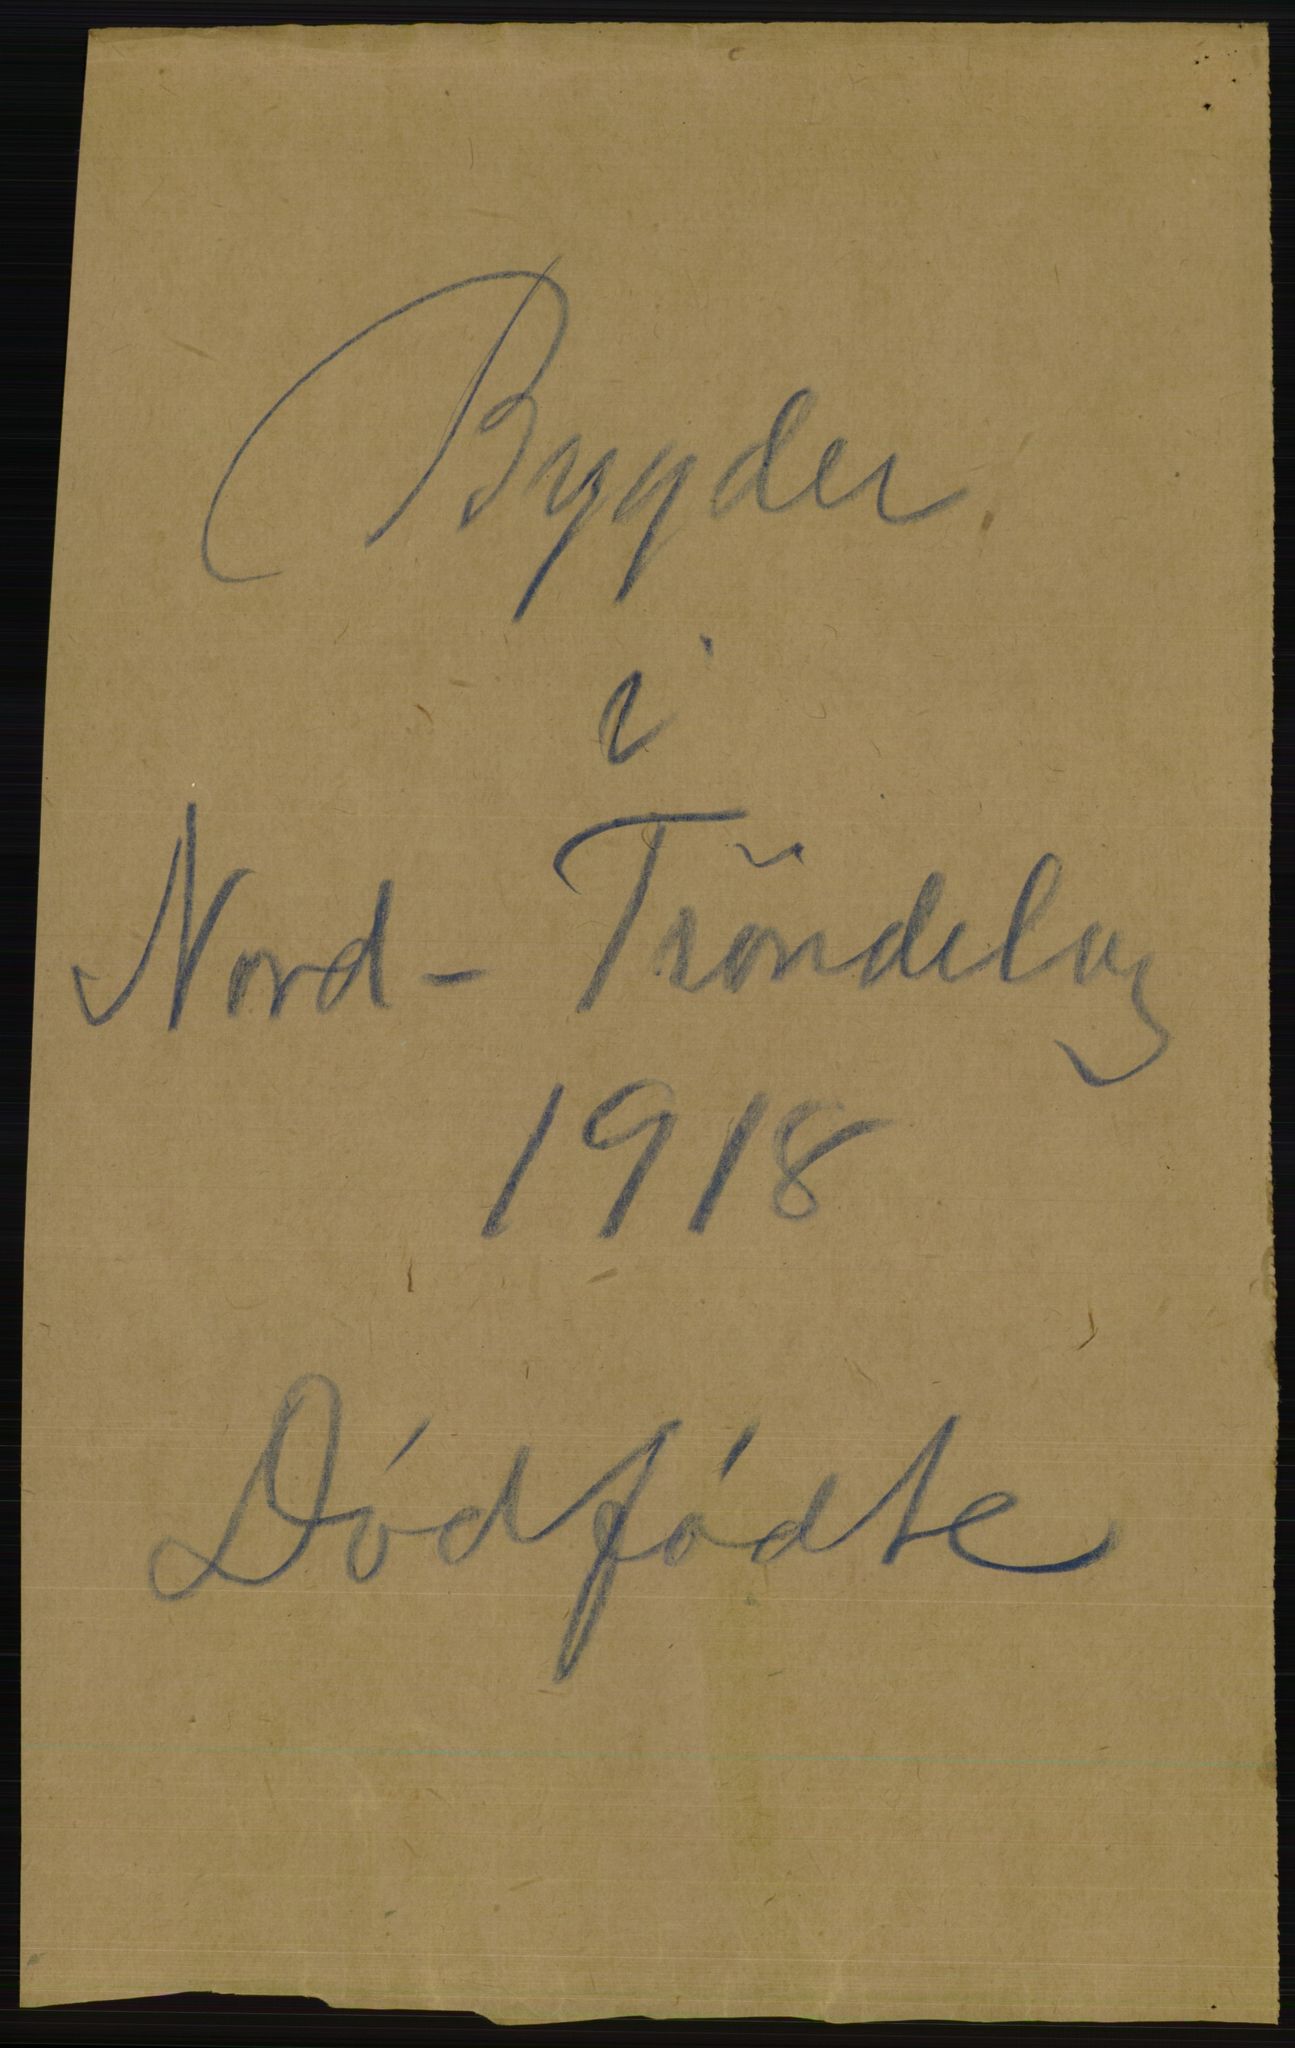 Bygder
i
Nord-Tröndelag
1918
Dódfódte